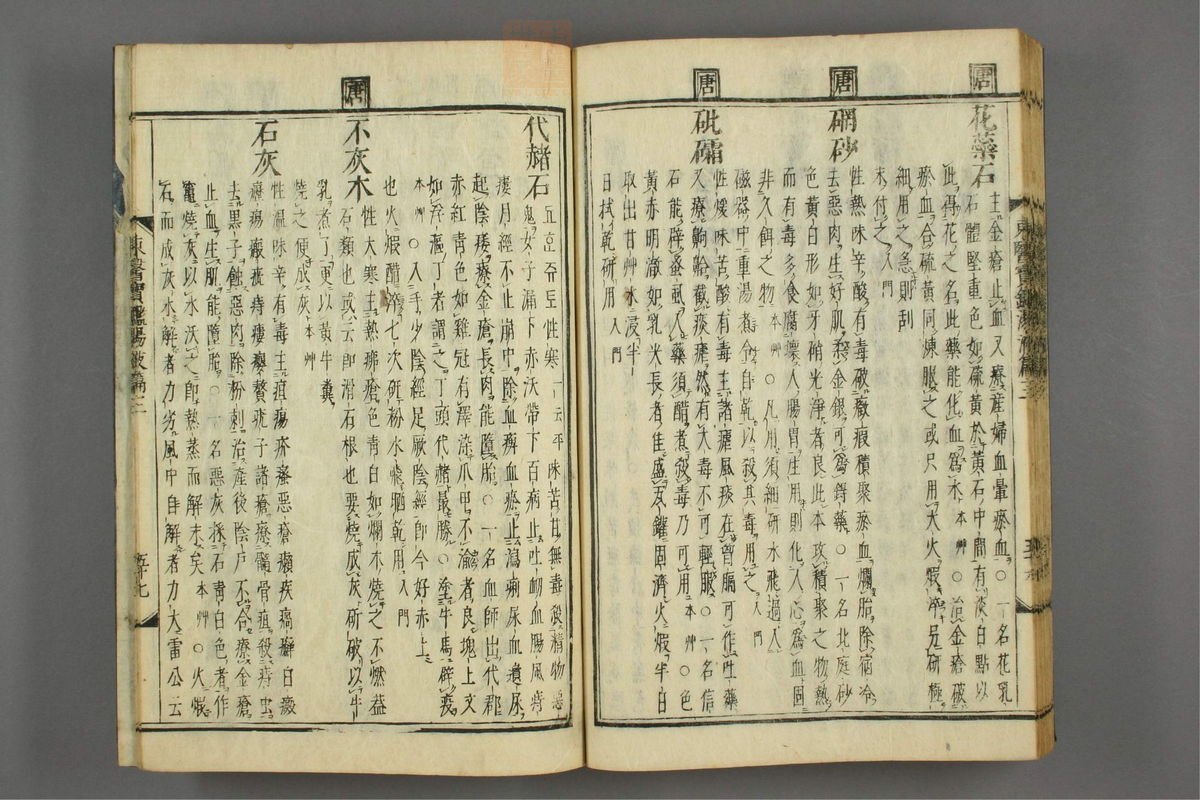 唐
花藥石
主金瘡止血又療産婦血暈瘀血○一名花乳
石體堅重色如硫黃於黃石中間有淡白點以
此得花之名此藥能化血爲水本艸○治金瘡破
瘀血合硫黃同煉服之或只用大火煆淬另研極
細用之急則刮
末付之入門
唐
硇砂
性熱味辛酸有毒破癥瘕積聚瘀血爛胎除宿冷
去惡肉生好肌柔金銀可爲銲藥○一名北庭砂
色黃白形如牙硝光淨者良此本攻積聚之物熱
而有毒多食腐壞人腸胃生用則化人心爲血固
非久餌之物本艸○凡用須細研水飛過入
磁器中重湯煮令自乾以殺其毒用之入門
唐
砒礵
性煖味苦酸有毒主諸瘧風痰在胷膈可作吐藥
又療齁䶎截痰瘧然有大毒不可輕服○一名信
石能辟蚤虱入藥須醋煮殺毒乃可用本艸○色
黃赤明澈如乳尖長者佳盛瓦鑵固濟火煆半日
取出甘艸水浸半
日拭乾研用入門
東醫寶鑑湯液篇三
代赭石
性寒一云平味苦甘無毒殺精物惡
鬼女子漏下赤沃帶下百病止吐衂血腸風痔
瘻月經不止崩中除血痺血瘀止瀉痢尿血遺尿
起陰痿療金瘡長肉能墮胎○一名血師出代郡
赤紅靑色如雞冠有澤染爪甲不渝者良塊上文
如浮漚丁者謂之丁頭代赭最勝○塗牛馬辟疫
本艸○入手少陰經足厥陰經即今好赤土
也火煆醋淬七次研粉水飛晒乾用入門
唐
不灰木
性大寒主熱痱瘡色靑白如爛木燒之不燃葢
石類也或云即滑石根也要燒成灰斫破以牛
乳煮了更以黃牛糞
燒之便成灰本艸
石灰
性溫味辛有毒主疽瘍疥瘙惡瘡癩疾瘑癬白癜
癧瘍瘢疵痔瘻癭贅疣子諸瘡療髓骨疽殺痔虫
去黑子蝕惡肉除粉刺治産後陰戶不合療金瘡
止血生肌能墮胎○一名惡灰採石靑白色者作
竈燒灰以水沃之即熱蒸而解末矣本艸○火煆
石而成灰水解者力劣風中自解者力大雷公云
東醫寶鑑湯液篇三